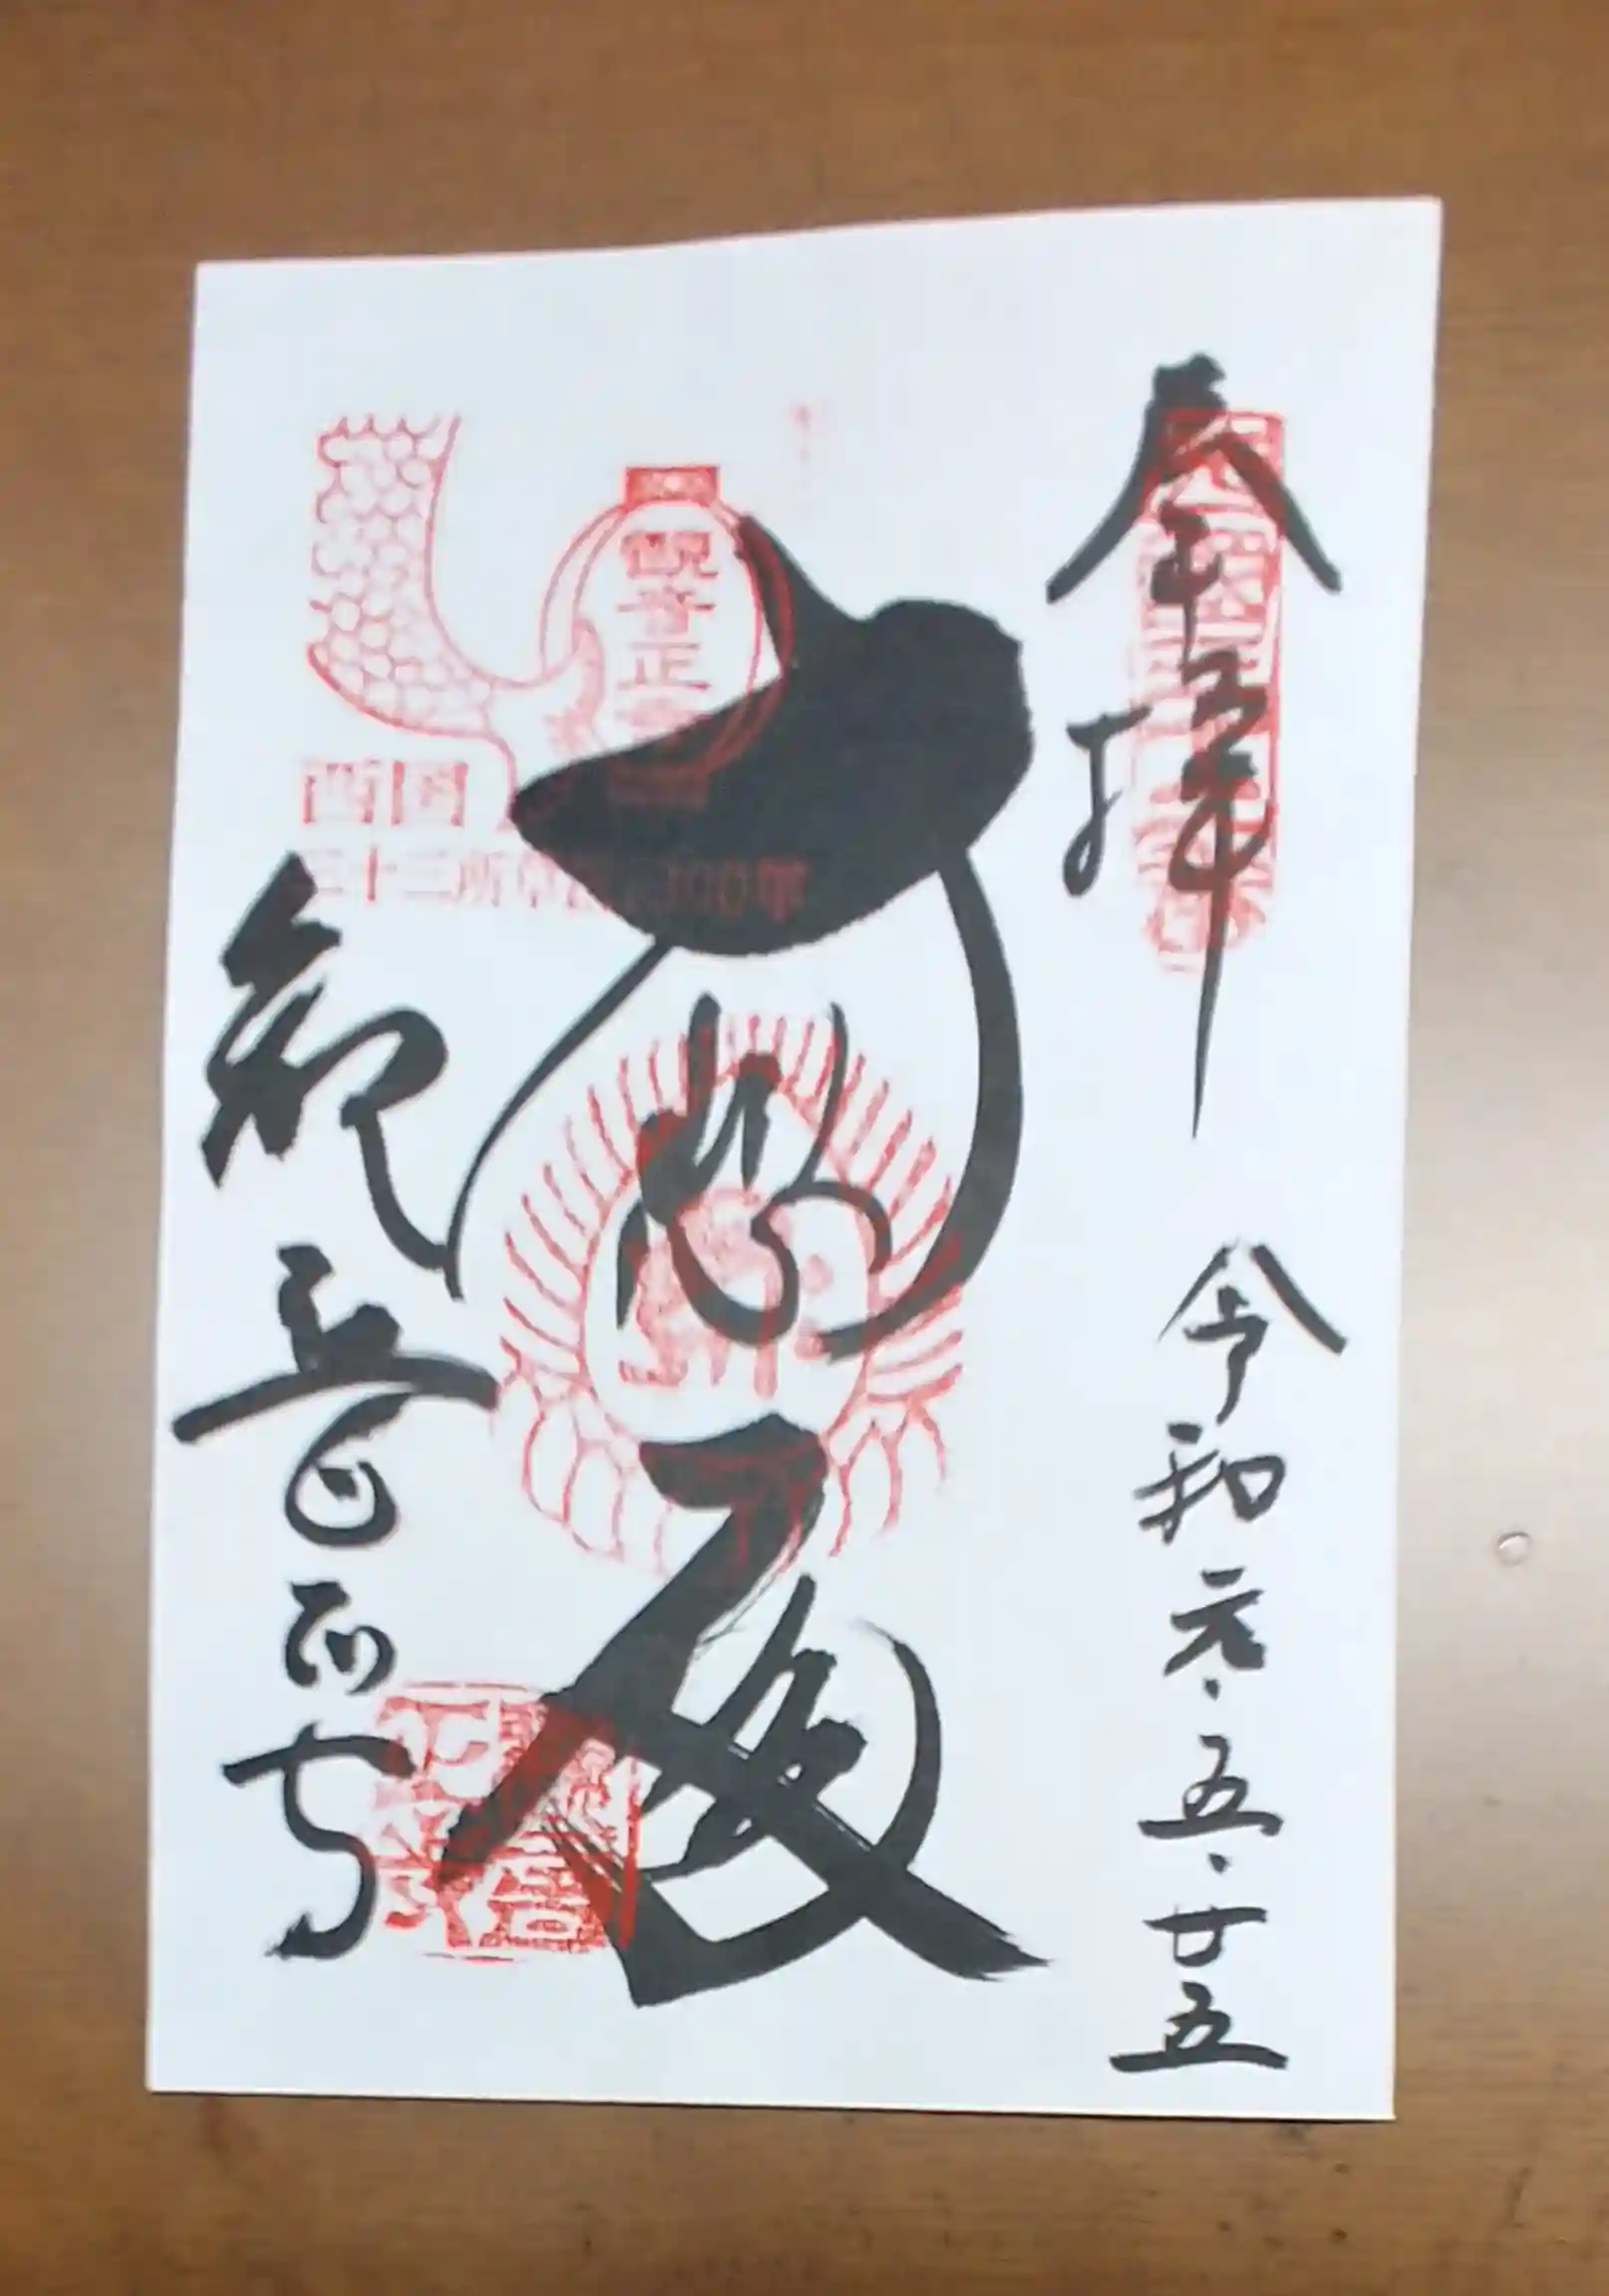 奉拝
令和元.五.廿五
大悲殿
観音正寺
西国
三十三所草創1300年
観音正寺